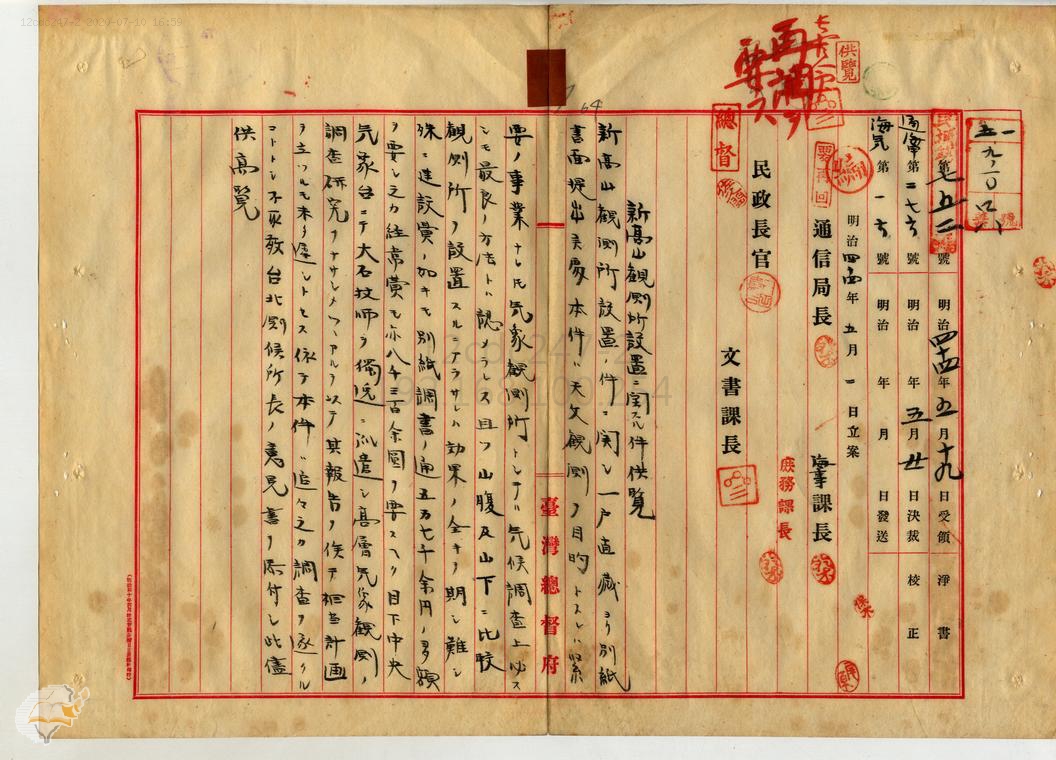 一
五九、二〇
民城秘第七五二號 明治四十四年五月十九日受領 淨書
通庶第二七六號 明治 年五月廿日決裁 校正
海気第一六號 明治 年 月 日發送
明治四四年五月一日立案
供覽
要再回
通信局長 海事課長
庶務課長
民政長官
總督
文書課長
新高山観測所設置ニ関スル件供覧
新高山観測所設置ノ件ニ関シ一戸直蔵ヨリ別紙
書面提出候處本件ハ天文観測ヲ目的トスレハ緊
要ノ事業ナレトモ気象観測所トシテハ気候調査上必ス
シモ最良ノ方法トハ認メラレス且ツ山腹及山下ニ比較
観測所ヲ設置スルニアラサレハ効果ノ全キヲ期シ難シ
殊ニ建設費ノ如キモ別紙調書ノ通五万七千余円ノ多額
ヲ要シ之カ経常費モ亦八千三百余圓ヲ要スヘク目下中央
気象台ニテ大石技師ヲ獨逸ニ派遣シ高層気象観測ノ
調査研究ヲナサシメツヽアルヲ以テ其報告ヲ俟テ相当計画
ヲ立ツルモ未タ遅シトセス依テ本件ハ追々之カ調査ヲ遂クル
コトトシ不取敢台北測候所長ノ意見書ヲ添付シ此儘
供高覧
臺灣總督府
12cd3247-2 2020-07-10 16:59